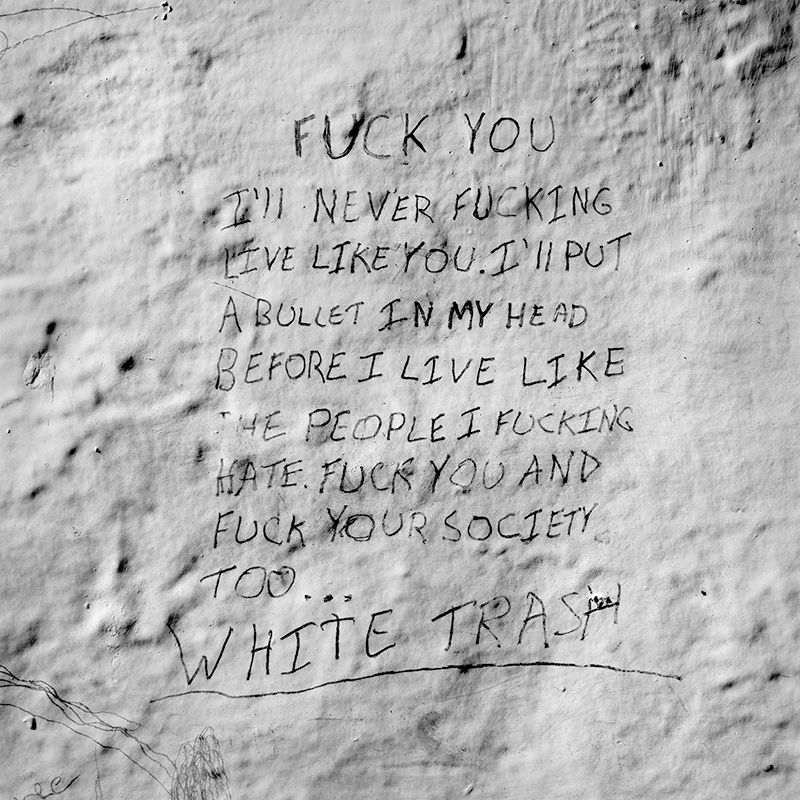 FUCK YOU
I'll NEVER FUCKING
LIVE LIKE YOU. I'll PUT
A BULLET IN MY HEAD
BEFORE I LIVE LIKE
THE PEOPLE I FUCKING
HATE. FUCK YOU AND
FUCK YOUR SOCIETY
TOO...
WHITE TRASH